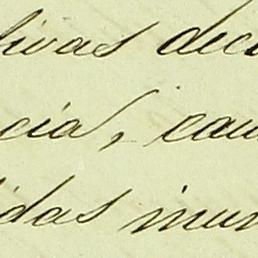 livas deci
cia, cau
idas inun